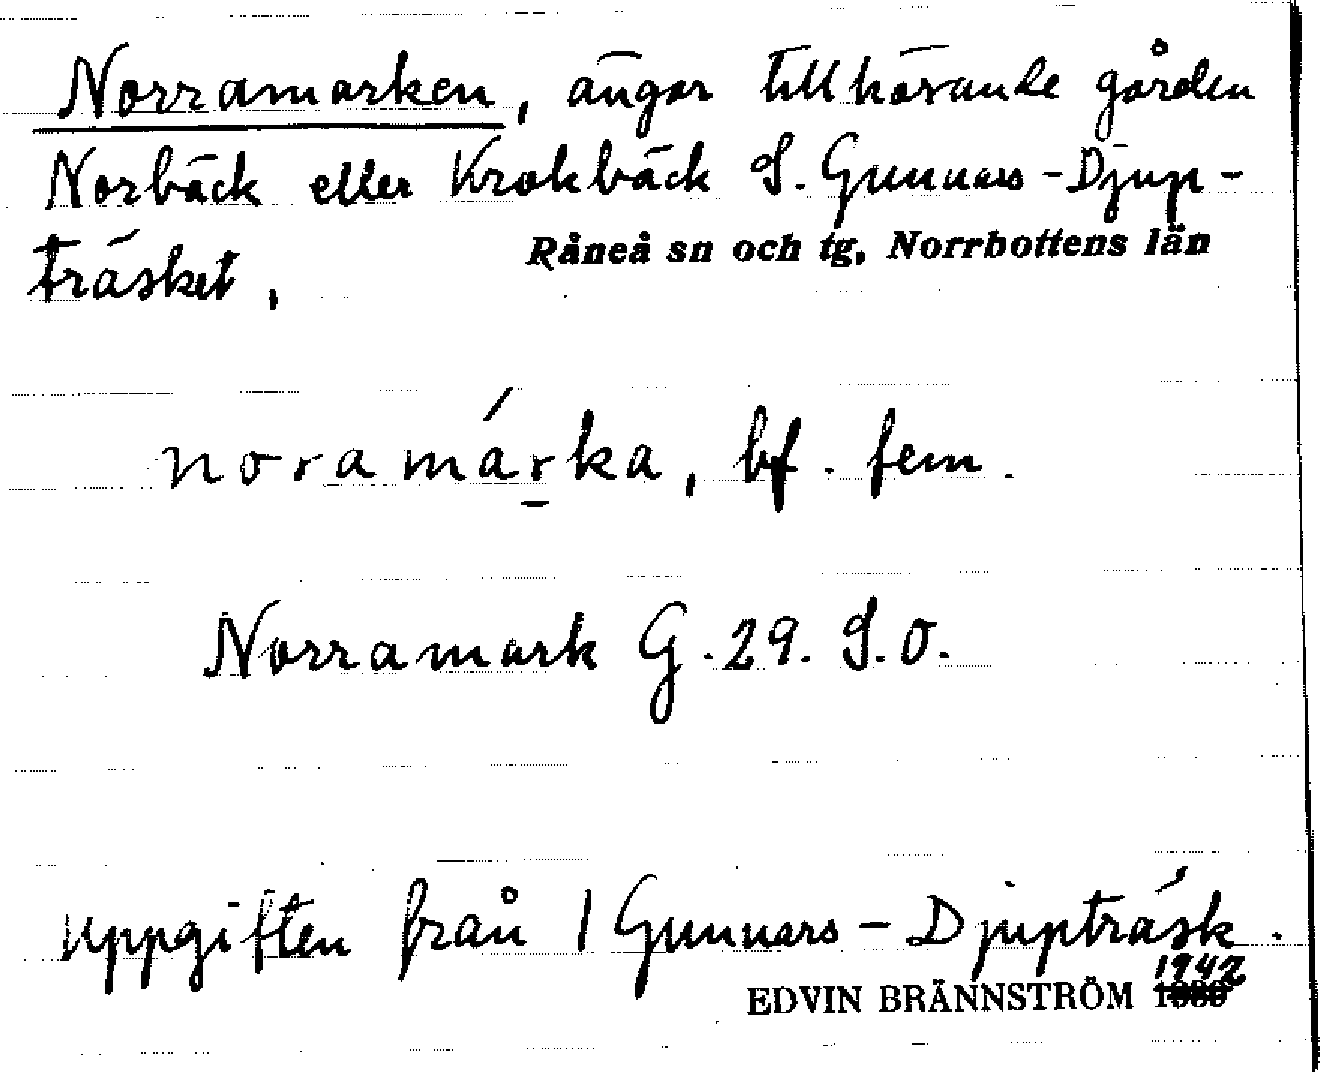 Norramarken, ängar tillhörande gården
Norbäck eller Krokbäck S. Gunnars-Djup-
träsket,
Råneå sn och tg, Norrbottens län
noramárka, bf. fem.
Norramark G. 29. S.O.
Uppgiften från 1 Gunnars-Djupträsk.
1942
EDVIN BRÄNNSTRÖM